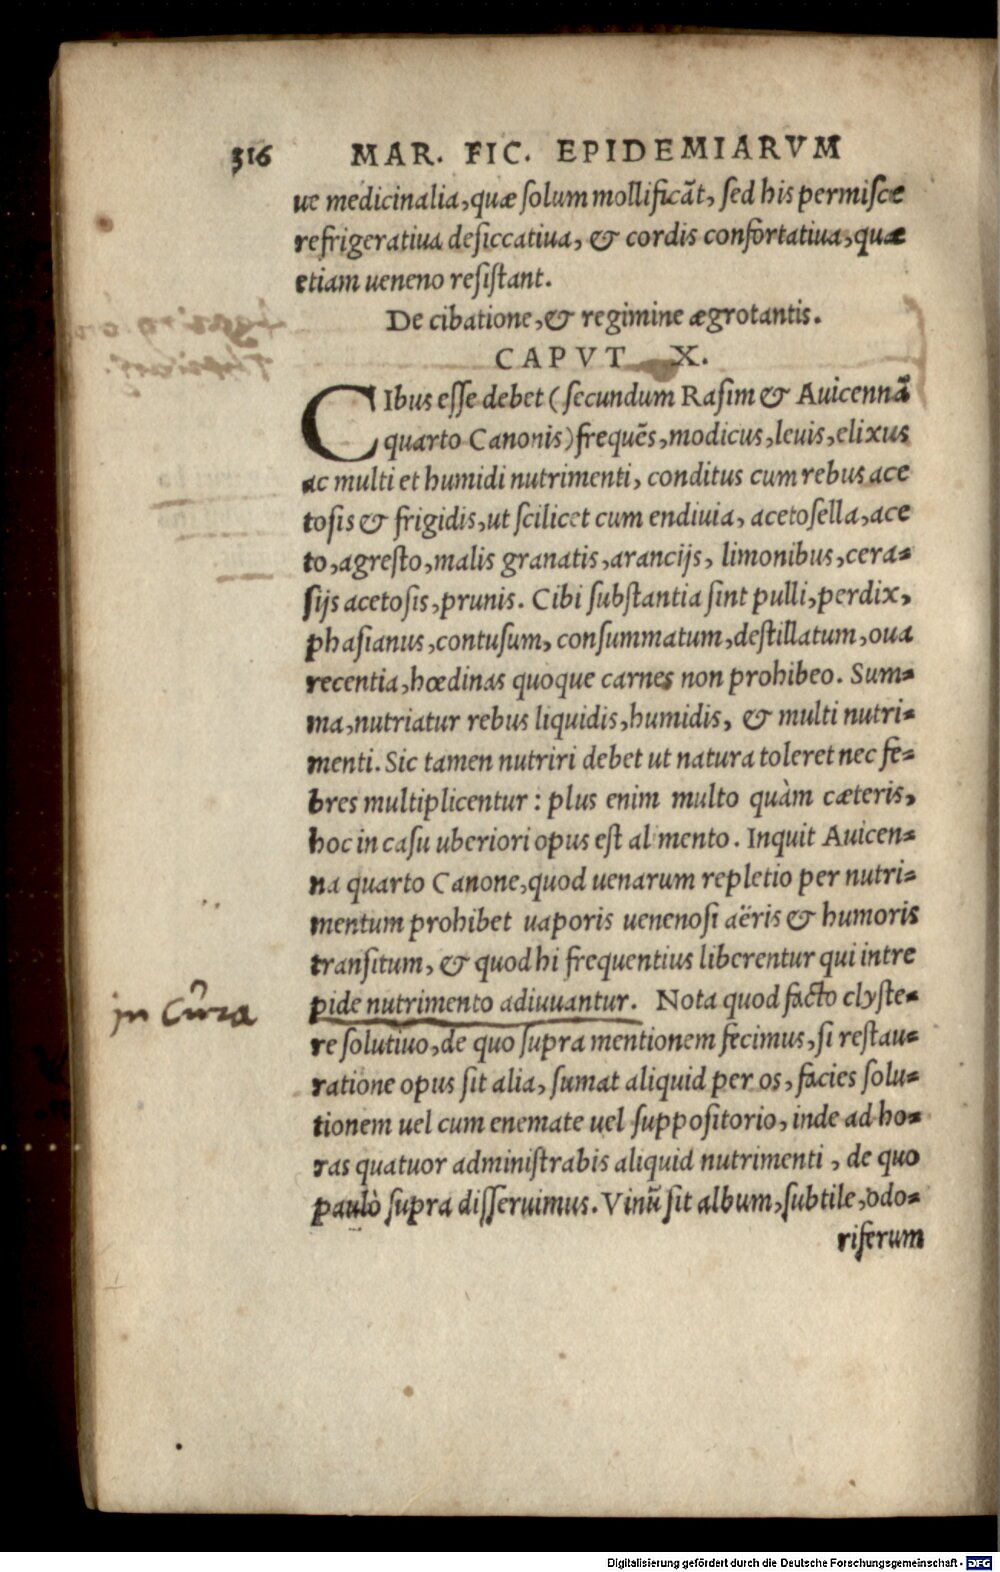 316 MAR. FIC. EPIDEMIARVM
ue medicinalia, quæ solum mollificãt, sed his permisce
refrigeratiua desiccatiua, & cordis confortatiua, quæ
etiam ueneno resistant.
De cibatione, & regimine ægrotantis.
CAPVT X.
CIbus esse debet (secundum Rasim & Auicennã
quarto Canonis) frequẽs, modicus, leuis, elixus
ac multi et humidi nutrimenti, conditus cum rebus ace
tosis & frigidis, ut scilicet cum endiuia, acetosella, ace
to, agresto, malis granatis, arancijs, limonibus, cera=
sijs acetosis, prunis. Cibi substantia sint pulli, perdix,
phasianus, contusum, consummatum, destillatum, oua
recentia, hœdinas quoque carnes non prohibeo. Sum=
ma, nutriatur rebus liquidis, humidis, & multi nutri=
menti. Sic tamen nutriri debet ut natura toleret nec fe=
bres multiplicentur : plus enim multo quàm cæteris,
hoc in casu uberiori opus est al mento. Inquit Auicen=
na quarto Canone, quod uenarum repletio per nutri=
mentum prohibet uaporis uenenosi aëris & humoris
transitum, & quod hi frequentius liberentur qui intre
pide nutrimento adiuuantur. Nota quod facto clyste=
in Cura
re solutiuo, de quo supra mentionem fecimus, si restau=
ratione opus sit alia, sumat aliquid per os, facies solu=
tionem uel cum enemate uel suppositorio, inde ad ho=
ras quatuor administrabis aliquid nutrimenti, de quo
paulò supra disseruimus. Vinũ sit album, subtile, odo=
riferum
Digitalisierung gefördert durch die Deutsche Forschungsgemeinschaft - DFG